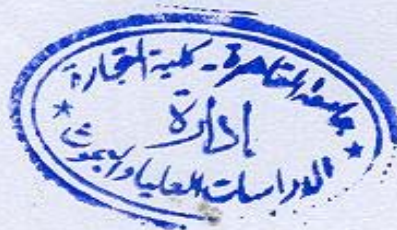 جامعة القاهرة - كلية التجارة
إدارة
الدراسات العليا والبحوث